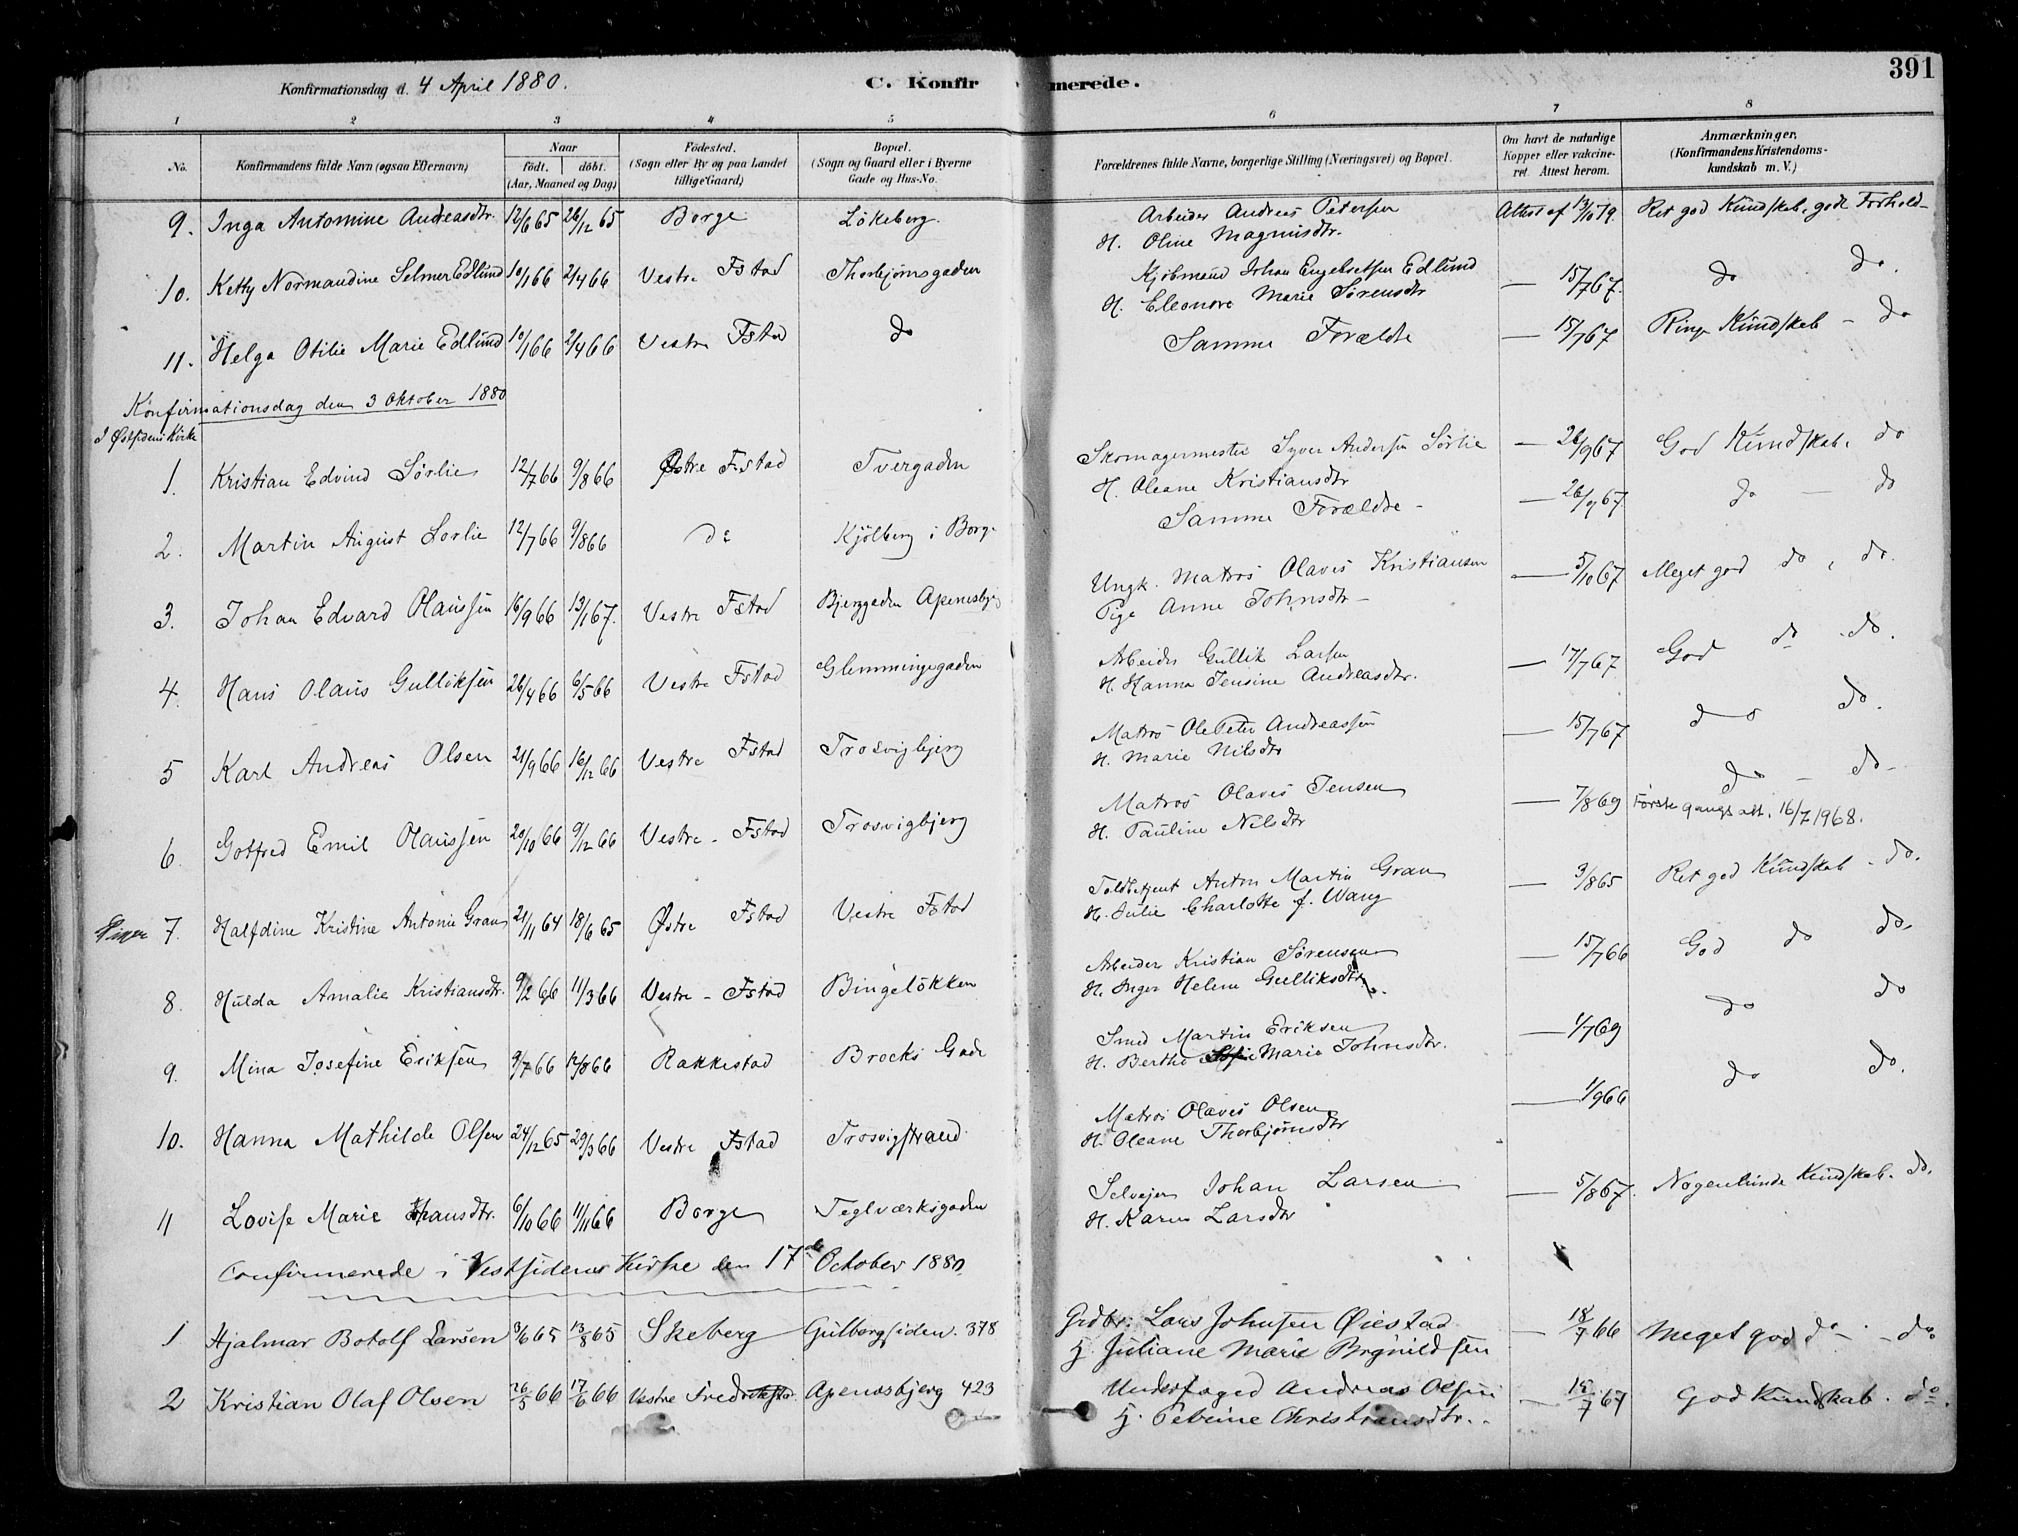 Konfirmationsdag d. 4 April 1880.
C. Konfirmerede.
391
1 2 3 4 5 6 7 8
No. Konfirmandens fulde Navn (ogsaa Efternavn) Naar født. døbt. (Aar, Maaned og Dag) Fødested. (Sogn eller By og paa Landet tillige Gaard) Bopæl. (Sogn og Gaard eller i Byerne Gade og Hus-No. Forældrenes fulde Navne, borgerlige Stilling (Næringsvei) og Bopæl. Om havt de naturlige Kopper eller vakcineret. Attest herom. Anmærkninger, (Konfirmandens Kristendomskundskab m. V.)
9. Inga Antomine Andreasdtr. 12/6 65 26/12 65 Borge Lökeberg Arbeider Andreas Petersen Attest af 13/10 79. Ret god Kundskab, godt Forhold
H. Oline Magnusdtr.
10. Ketty Normandine Selmer Edlund 10/1 66 2/4 66 Vestre Fstad Thorbjørnsgaden Kjöbmand Johan Engebretsen Edlund — 15/7 67. do do.
H. Eleonore Marie Sørensdtr
11. Helga Otilie Marie Edlund 10/1 66 2/4 66 Vestre Fstad do Samme Forældre — 15/7 67 Ringe Kundskab - do
Konfirmationsdag den 3 Oktober 1880
I Østsidens Kirke
1. Kristian Edvind Sørlie 12/7 66 9/8 66 Østre Fstad Tvergaden Skomagermester Syver Andersen Sørlie — 26/9 67 God Kundskab. do
H. Oleane Kristiansdtr
2. Martin August Sorlie 12/7 66 9/8 66 do Kjölberg i Borge Samme Forældre - — 26/9 67 do — do
3. Johan Edvard Olaussen 16/9 66 13/1 67. Vestre Fstad Bjerggaden Apenesbjerg Ungk. Matros Olaves Kristiansen — 5/10 67 Meget god do, do.
Pige Anne Johnsdtr
4. Hans Olaus Gulliksen 26/4 66 6/5 66 Vestre Fstad Glemmingegaden Arbeider Gullik Larsen — 17/7 67 God do do.
H. Hanna Jensine Andreasdtr.
5 Karl Andreas Olsen 21/9 66 16/12 66 Vestre Fstad Trosvigbjerg Matros Ole Peter Andreassen — 15/7 67 do do.
H. Marie Nilsdtr
6. Gotfred Emil Olaussen 20/10 66 9/12 66 Vestre - Fstad Trosvigbjerg Matros Olaves Jensen — 7/8 69 do - do -
H. Pauline Nilsdtr Første gangs att. 16/7 1968.
Piger 7. Halfdine Kristine Antonie Gran 21/11 64 18/6 65 Østre Fstad Vestre Fstad Toldbetjent Anton Martin Gran — 3/8 65 Ret god Kundskab - do.
H. Julie Charlotte f. Wang
8. Hulda Amalie Kristiansdtr. 9/2 66 11/3 66 Vestre - Fstad Bingelökken Arbeider Kristian Sørensen — 15/7 66 God do do.
H. Inger Helene Gulliksdtr.
9. Mina Josefine Eriksen 9/7 66 12/8 66 Rakkestad Brocks Gade Smed Martin Eriksen — 1/7 69 do do
H. Berthe Marie Johnsdtr.
10. Hanna Mathilde Olsen 24/12 65 29/3 66 Vestre Fstad Trosvigstrand Matros Olaves Olsen — 1/9 66 do do.
H. Oleane Thorbjørnsdtr
11 Lovise Marie Johansdtr. 6/10 66 11/11 66 Borge Teglværksgaden Selveier Johan Larsen — 5/8 67. Nogenlunde Kundskab. do.
H. Karen Larsdtr
Confirmerede i Vestsidens Kirke den 17de October 1880.
1 Hjalmar Botolf Larsen 3/6 65 13/8 65 Skeberg Gulbergsiden. 378 Grdbr. Lars Johnsen Øiestad — 18/7 66 Meget god do - do
H. Juliane Marie Brynildsen
2 Kristian Olaf Olsen 26/5 66 17/6 66 Vestre Fredrikstad Apenesbjerg 423 Underfoged Andreas Olsen — 15/7 67 God Kundskab. do.
H. Petrine Christiansdtr.